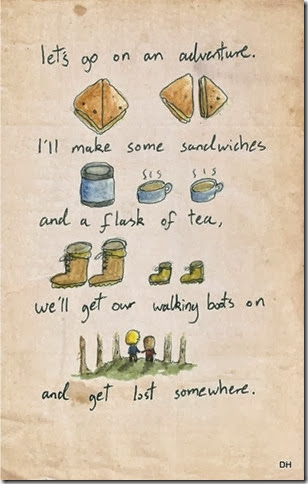 let's go on an adventure.
I'll make some sandwiches
and a flask of tea,
we'll get our walking boots on
and get lost somewhere.
DH